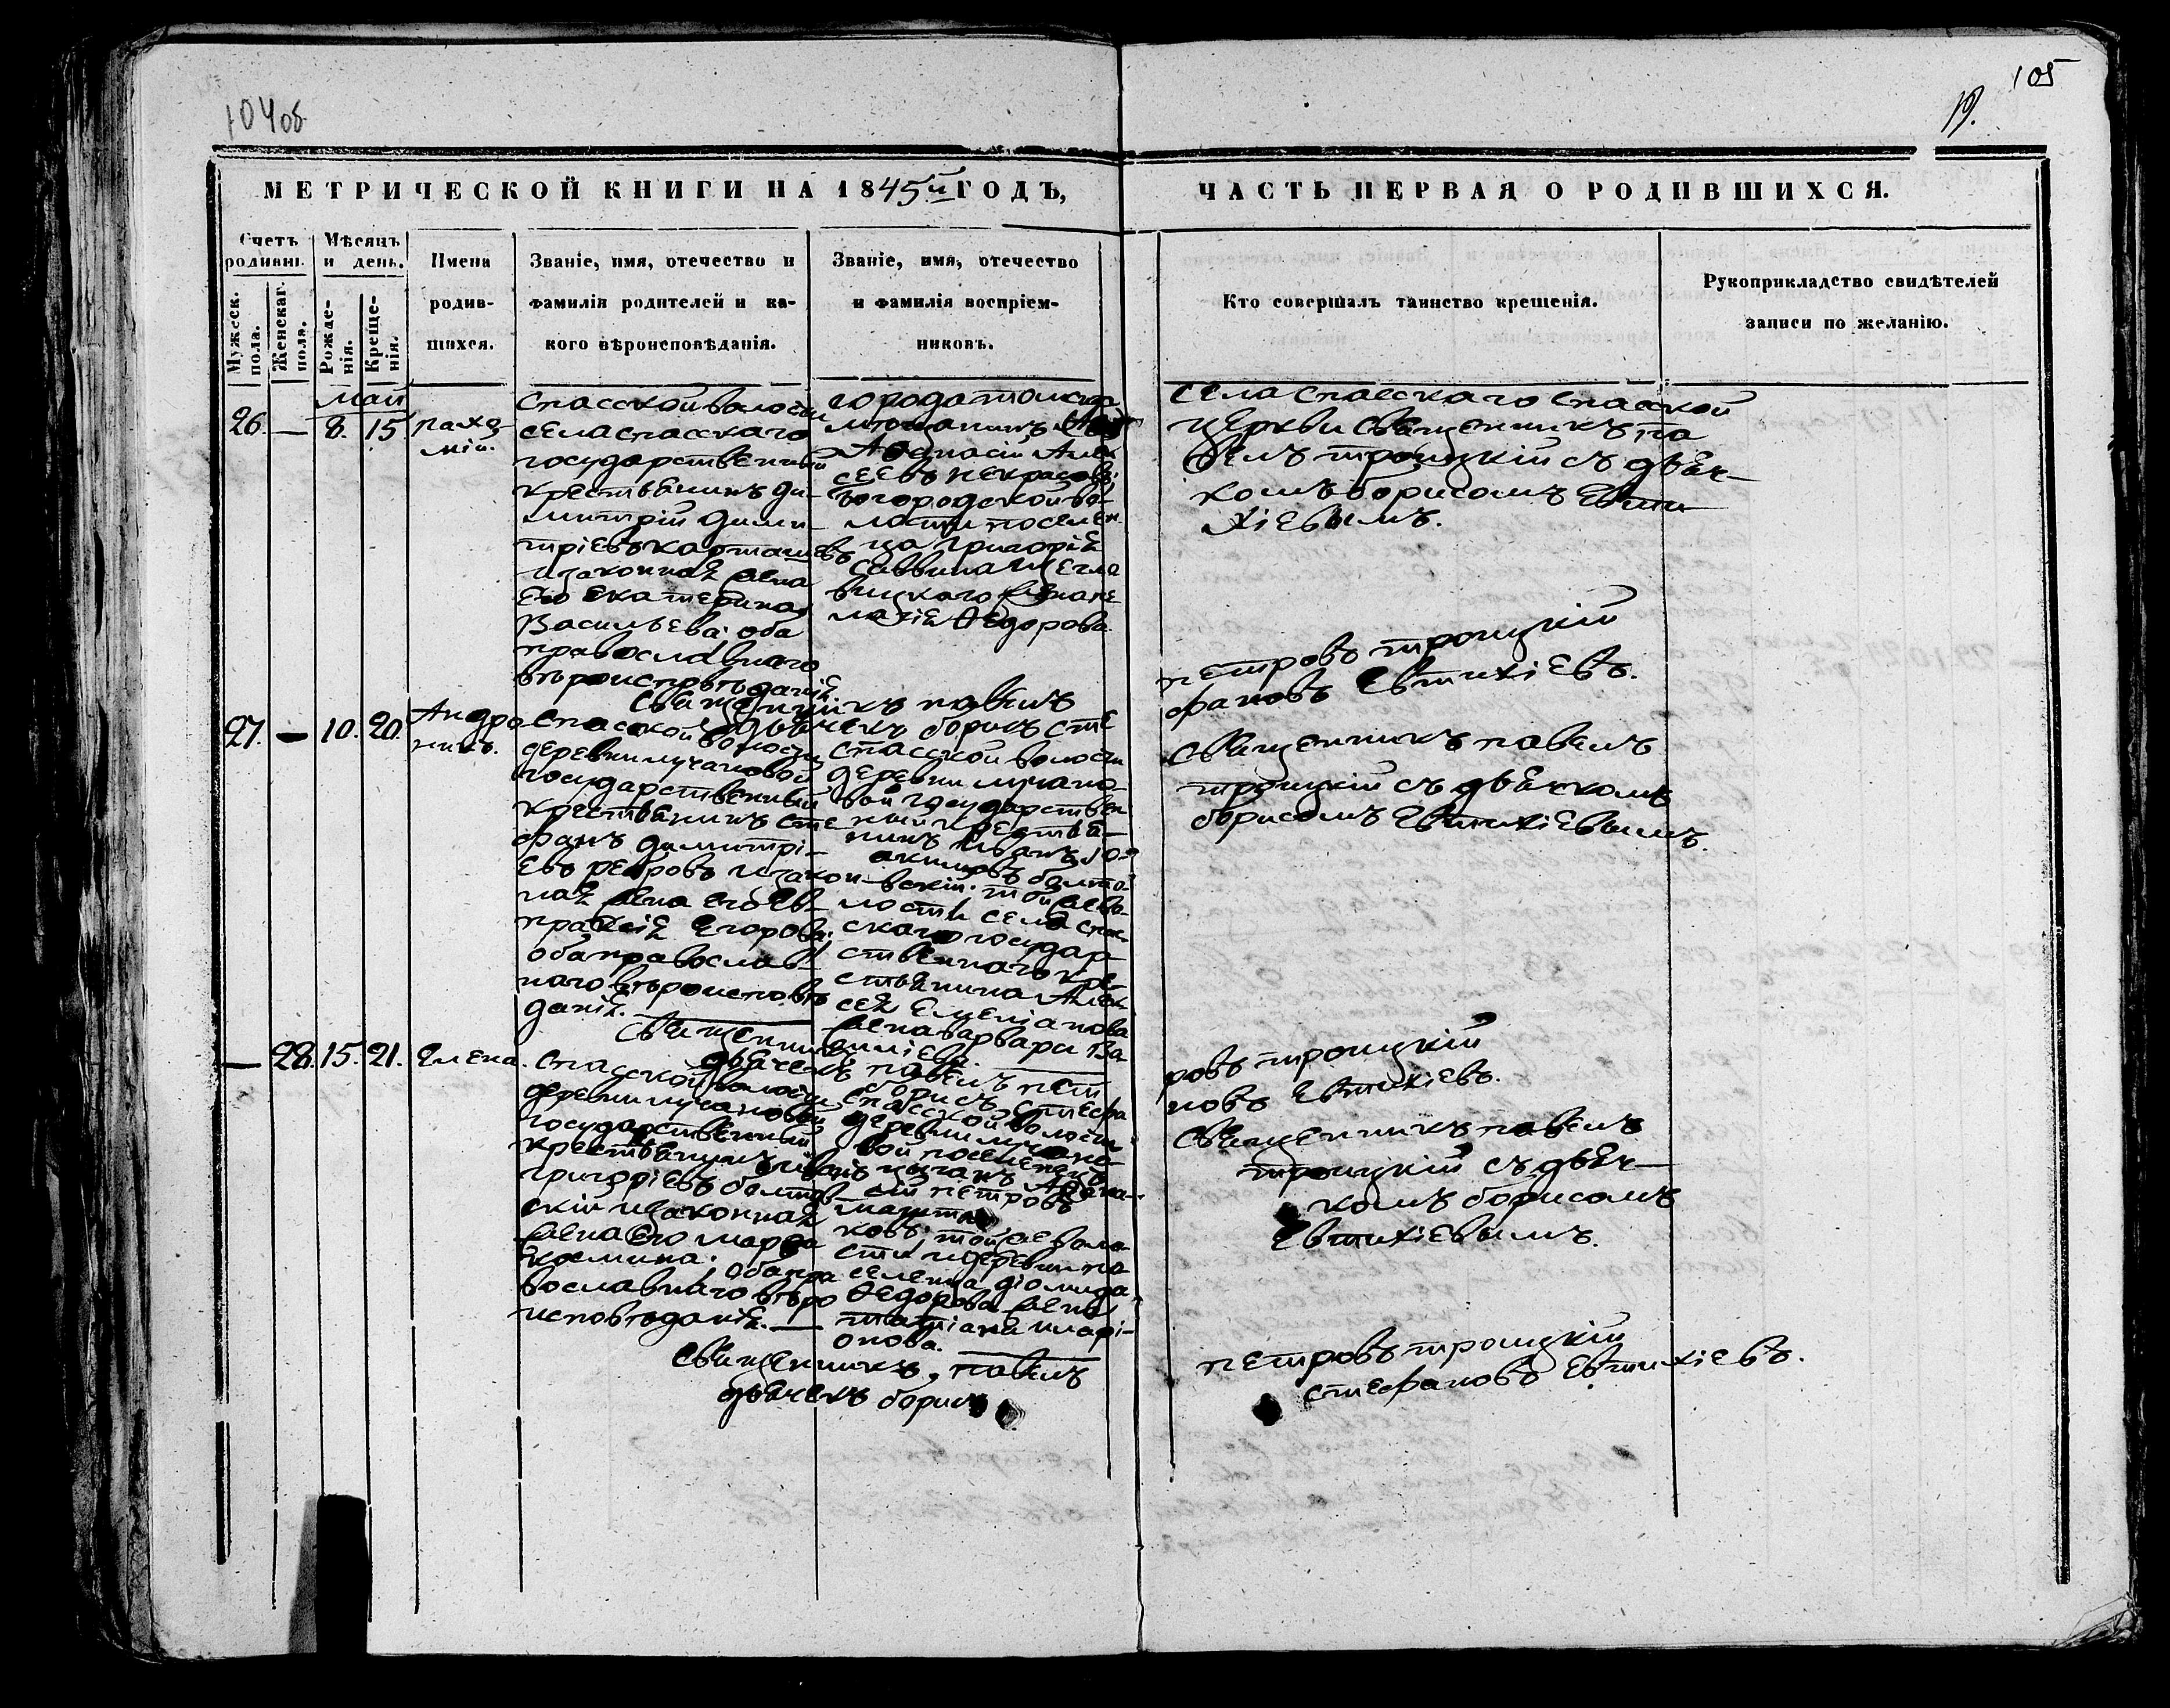 104об
105
19.
МЕТРИЧЕСКОЙ КНИГИ НА 1845й ГОДЪ,
ЧАСТЬ ПЕРВАЯ О РОДИВШИХСЯ.
Счетъ родивш.
Мужеск. пола.
Женскаг. пола.
Мѣсяцъ и день.
Рожденія.
Крещенія.
Имена
родив-
шихся.
Званіе, имя, отечество и
фамилія родителей и ка-
кого вѣроисповѣданія.
Званіе, имя, отечество
и фамилія воспріем-
никовъ.
Кто совершалъ таинство крещенія.
Рукоприкладство свидѣтелей
записи по желанію.
май
26. — 8. 15
пахо-
мій.
спасской волости
села спасскаго
государственный
крестьянинъ ди-
митрій дими-
тріевъ карташевъ
и законная жена
его екатерина
Васильева: оба
православнаго
вѣроисповѣданія.
города томска
мѣщанинъ
Аѳанасій Алек
сеевъ некрасовъ;
богородской во-
лости поселен-
ца григорія
саввина
жена пе
лагія Ѳедорова.
села спасскаго спасской
церкви священникъ па
велъ троицкій съ дьяч-
комъ борисомъ Евти-
хіевымъ.
священникъ павелъ
дьячекъ борисъ сте
петровъ троицкій
фановъ Евтихіевъ.
27. — 10. 20.
Андро
никъ.
спасской волости
деревни лучановой
государственный
крестьянинъ сте
фанъ димитрі-
евъ ребровъ и закон
ная жена его Ев-
праксія Егорова:
оба православ-
наго вѣроисповѣ
данія.
спасской волости
деревни лучано-
вой государствен
ный крестья-
нинъ иванъ Іо-
акимовъ болто-
вскій. той же во-
лости села спас-
скаго государ-
ственнаго кре-
стьянина Алек-
сея Емеліанова
жена варвара Ва
силіева.
священникъ павелъ
троицкій съ дьячкомъ
борисомъ Евтихіевымъ.
священникъ павелъ пет
дьячекъ борисъ стефа
ровъ троицкій
новъ Евтихіевъ.
— 28. 15. 21.
Елена.
спасской волости
деревни лучановой
государственный
крестьянинъ иванъ
григоріевъ болтов-
скій и законная
жена его марѳа
космина: оба пра
вославнаго вѣро
исповѣданія.
спасской волости
деревни лучано-
вой поселенецъ
Аѳана-
сій петровъ
ковъ; той же воло-
сти и деревни по
селенца діомида
Ѳедорова жена
татіана иларі-
онова.
священникъ павелъ
троицкій съ дьяч-
комъ борисомъ
Евтихіевымъ.
священникъ, павелъ
дьячекъ борисъ
петровъ троицкій
стефановъ Евтихіевъ.